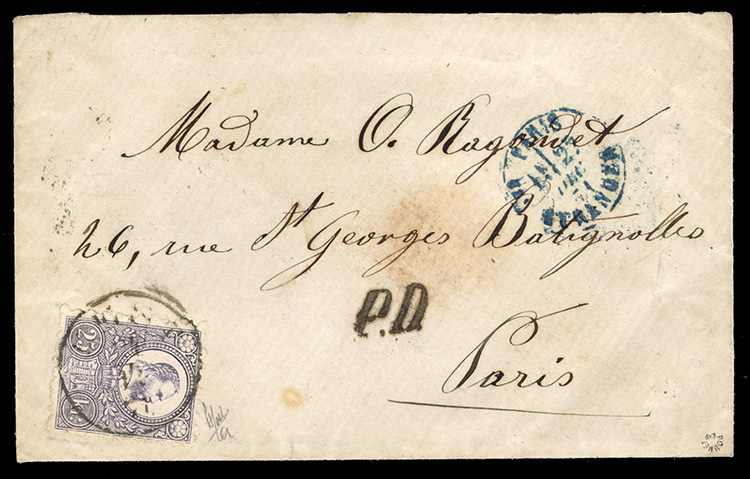 Madame O. Ragondet
26, rue St Georges Batignolles
Paris
P.D.
PARIS
DEC
ETRANGER
25